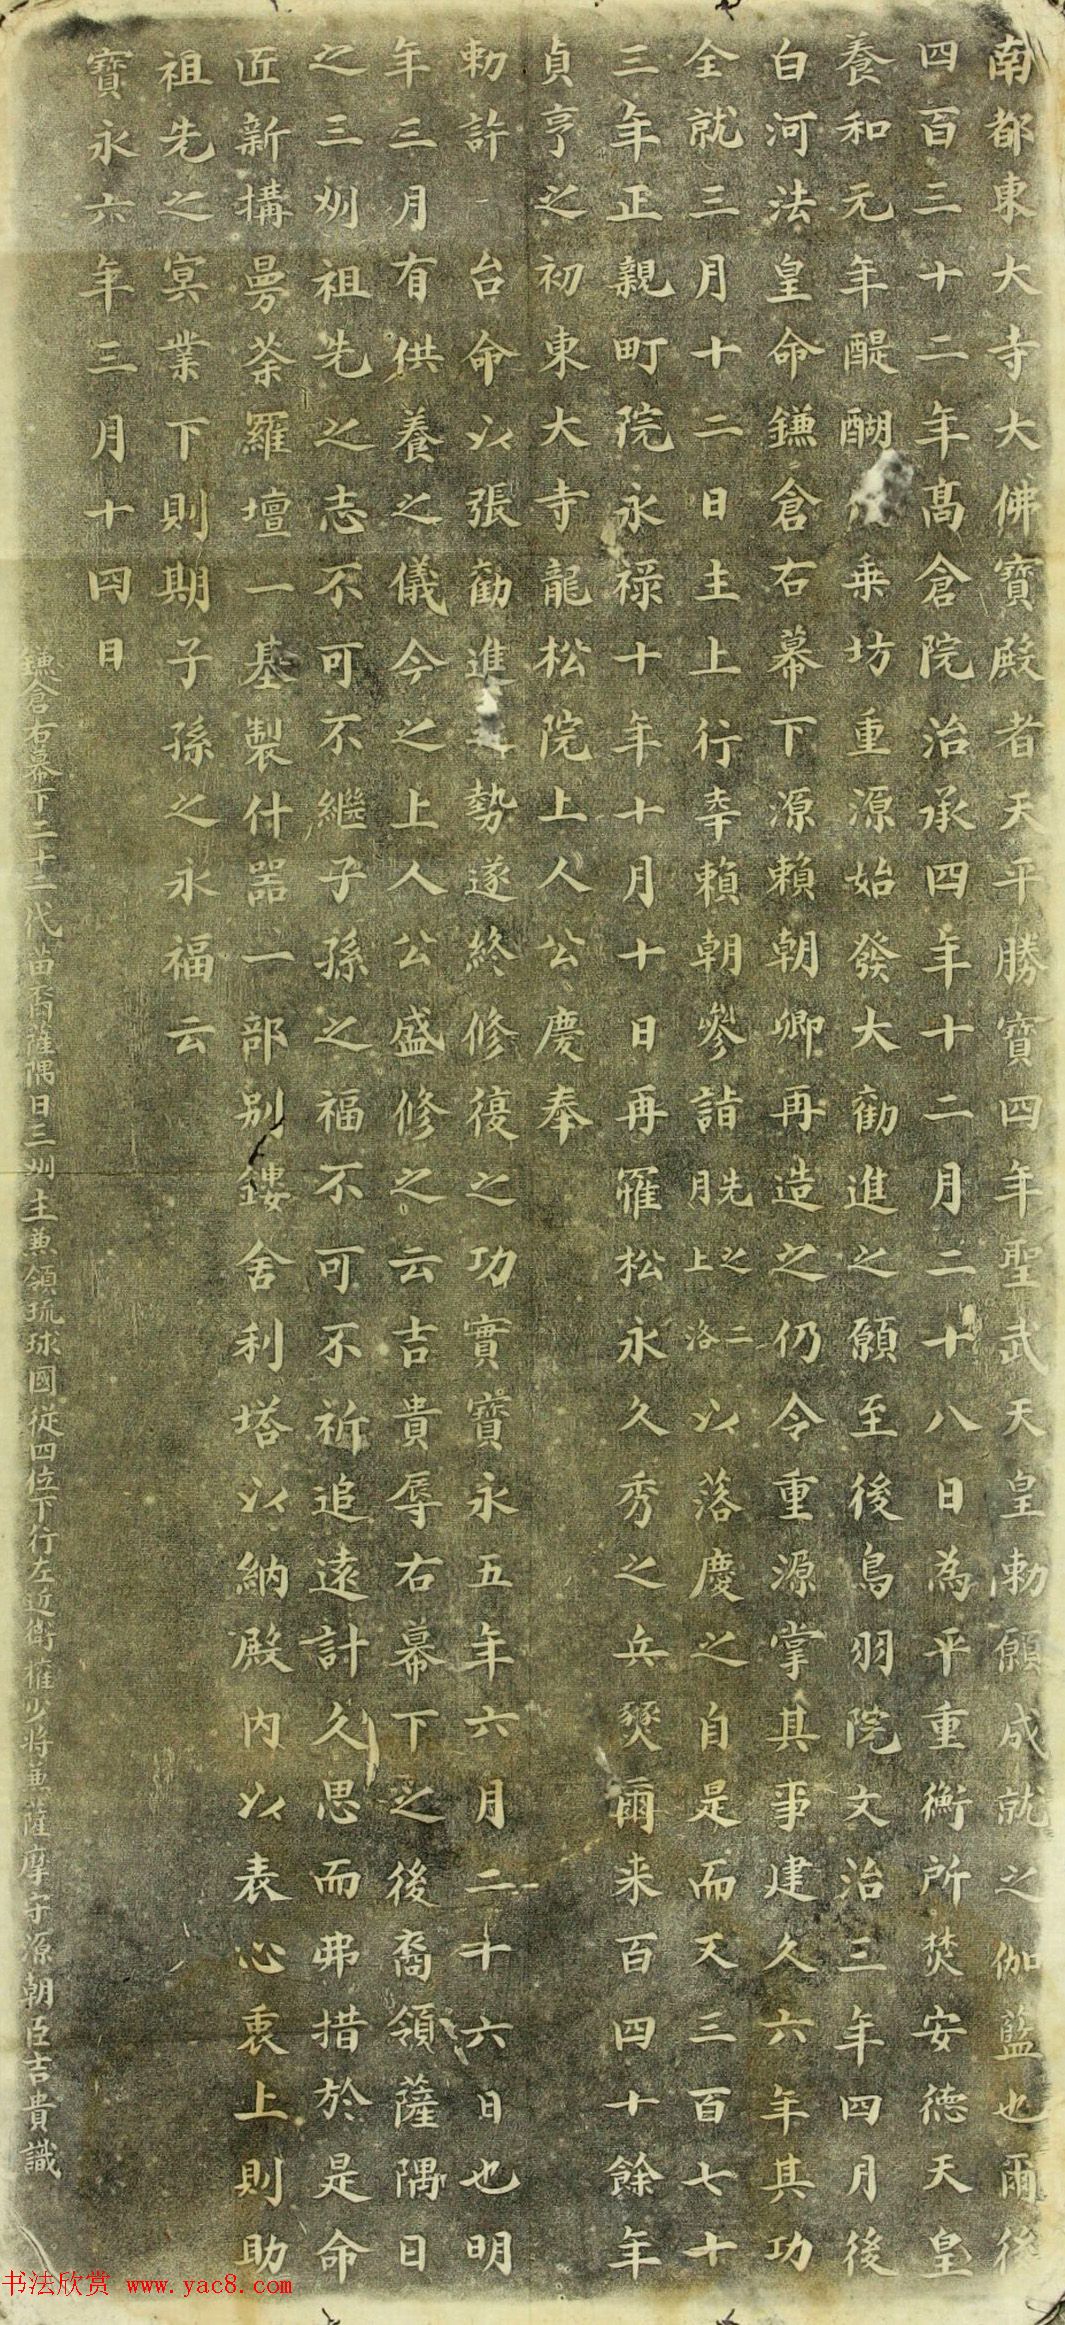 南都東大寺大佛寶殿者天平勝寶四年聖武天皇勅願成就之伽藍也爾後
四百三十二年髙倉院治承四年十二月二十八日為平重衡所焚安徳天皇
養和元年醍醐乗坊重源始發大勸進之願至後鳥羽院文治三年四月後
白河法皇命鎌倉右幕下源賴朝卿再造之仍令重源掌其事建久六年其功
全就三月十二日主上行幸賴朝參詣先之二月上洛以落慶之自是而天三百七十
三年正親町院永禄十年十月十日再罹松永久秀之兵燹爾来百四十餘年
貞亨之初東大寺龍松院上人公慶奉
勅許台命以張勸進勢遂終修復之功實寶永五年六月二十六日也明
年三月有供養之儀今之上人公盛修之云吉貴辱右幕下之後裔領薩隅日
之三州祖先之志不可不繼子孫之福不可不祈追遠計久思而弗措於是命
匠新搆曼荼羅壇一基製什器一部别鏤舍利塔以納殿内以表心衷上則助
祖先之冥業下則期子孫之永福云
寶永六年三月十四日
鎌倉右幕下二十二代苗裔薩隅日三州主兼領琉球國従四位下行左近衛權少将兼薩摩守源朝臣吉貴識
书法欣赏 www.yac8.com